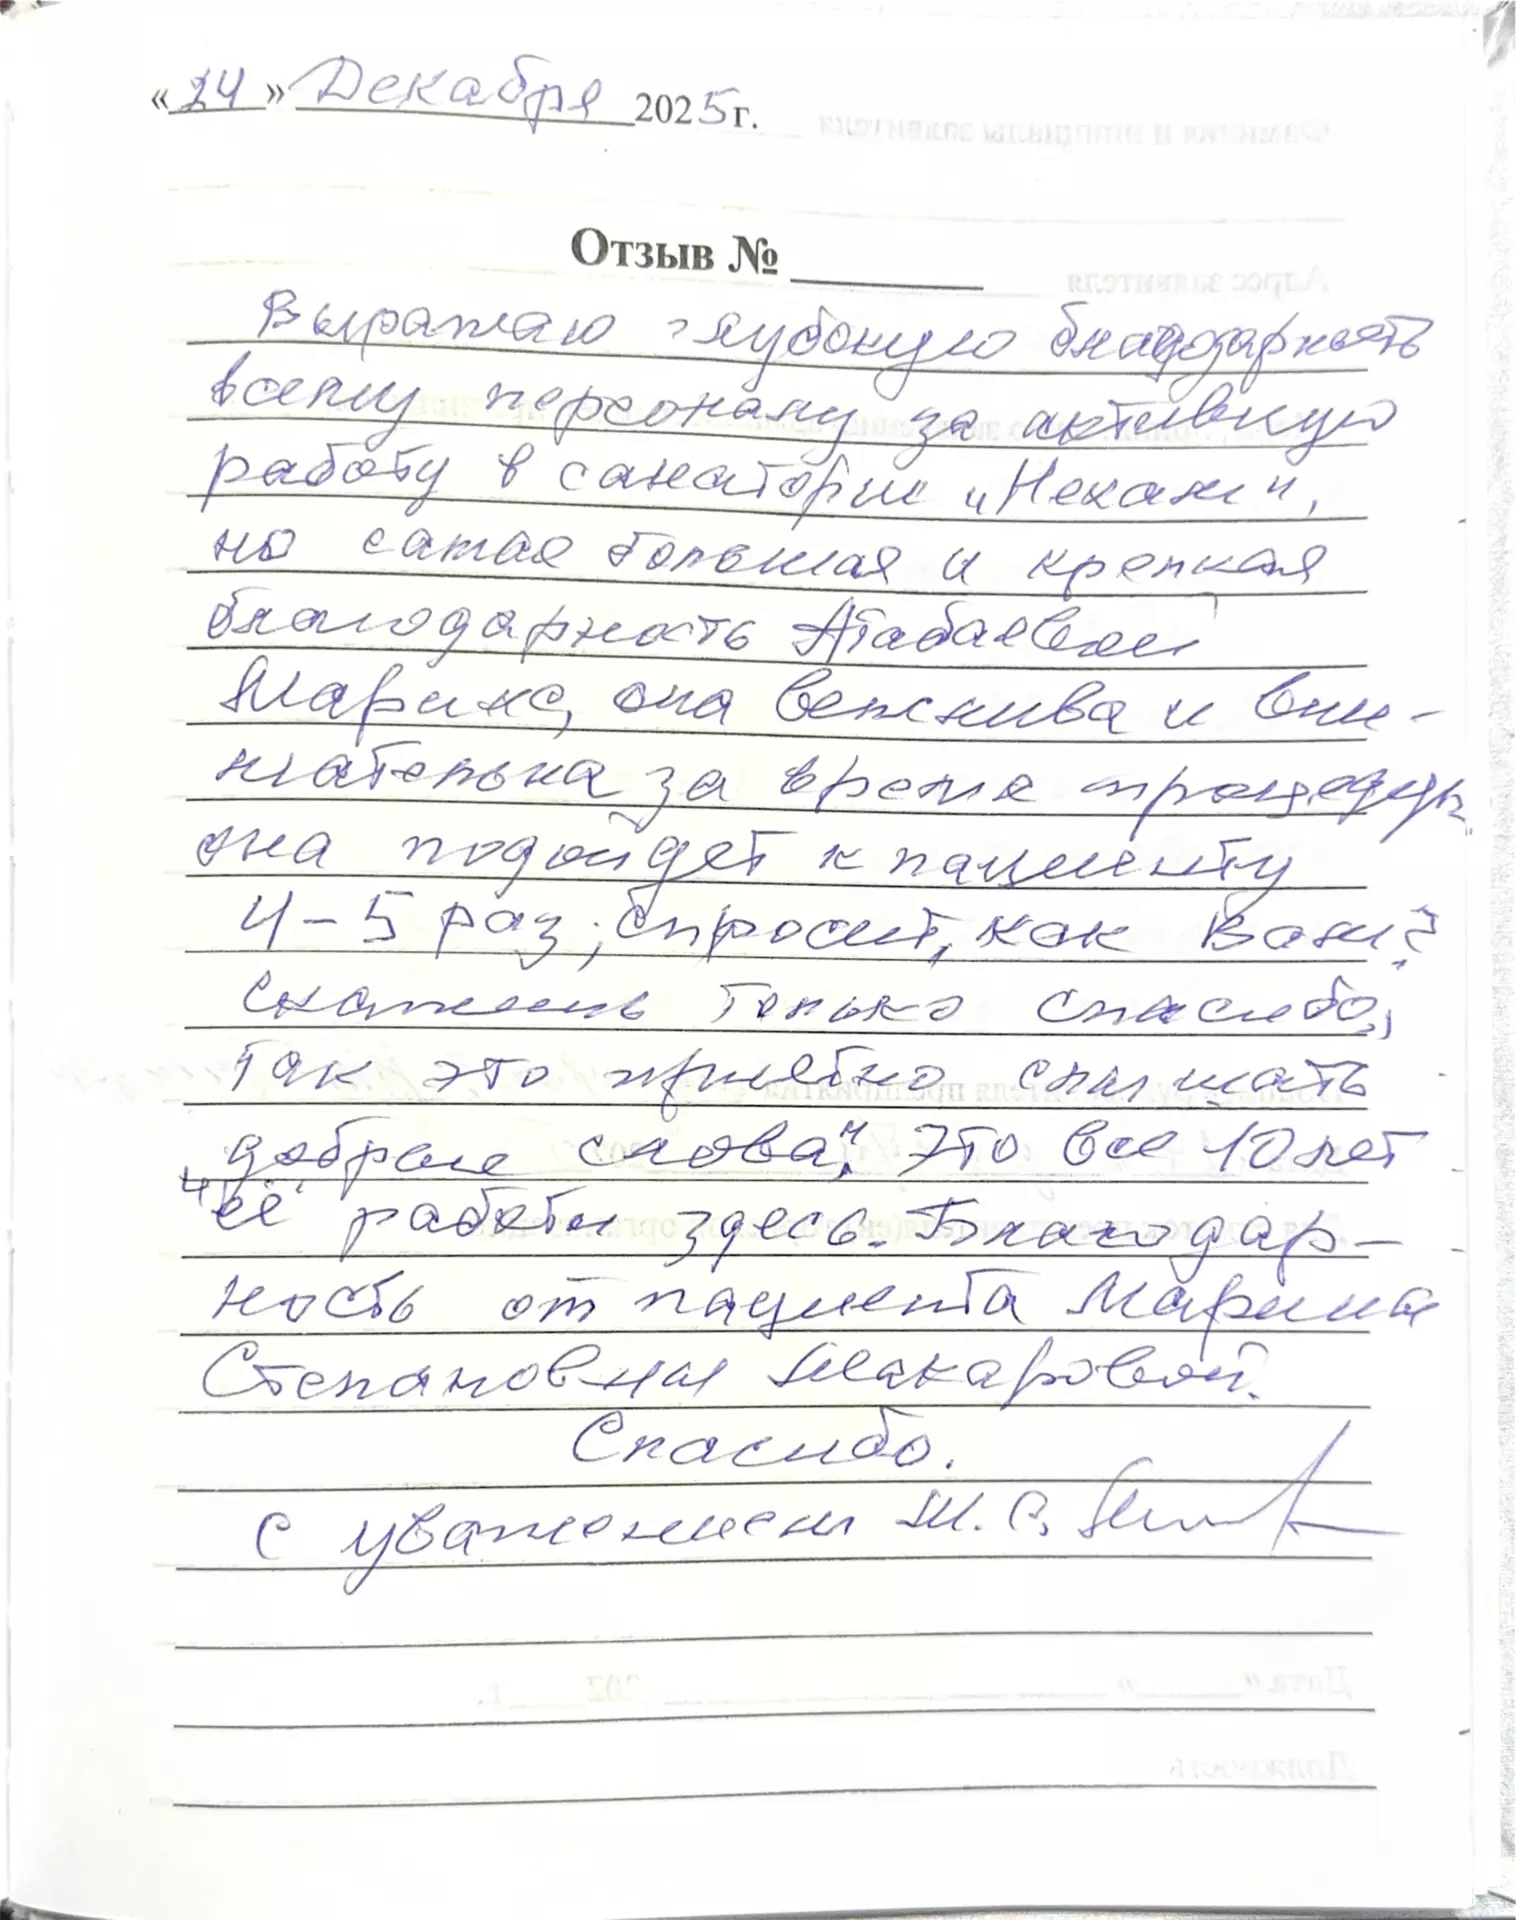 «24» Декабря 2025 г.
Отзыв №
Выражаю глубокую благодарность
всему персоналу за активную
работу в санатории „Нехам",
но самая большая и крепкая
благодарность Атабаевой
Марине, она вежлива и вни-
мательна за время процедуры
она подойдет к пациенту
4-5 раз, спросит, как Вам?
скажешь только спасибо,
так это приятно слышать
добрые слова". Это все 10 лет
„её" работы здесь. Благодар-
ность от пациента Марии
Степановны Макаровой.
Спасибо.
с уважением М. С.